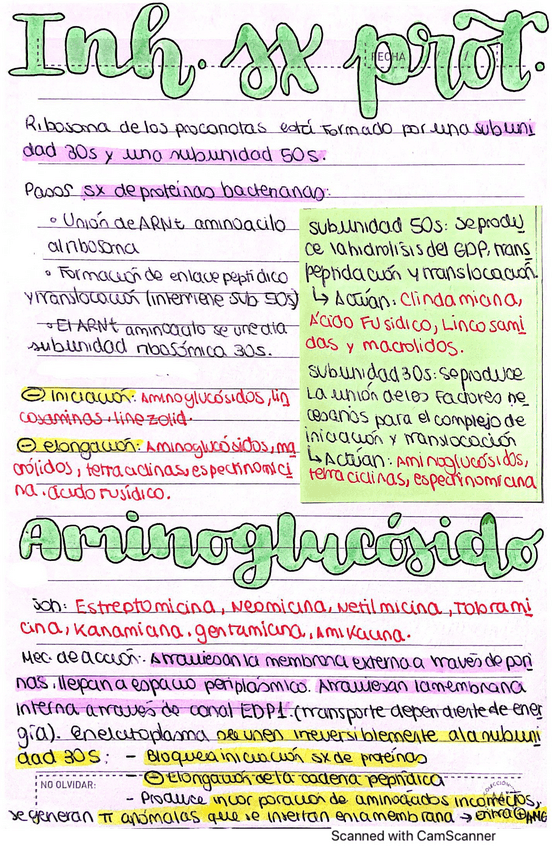 Inh. sx prot.
FECHA
Ribosoma de los procariotas está formado por una subuni
dad 30s y una subunidad 50s.
Pasos sx de proteínas bacterianas:
◦ Unión de ARNt aminoacilo
al ribosoma
◦ Formación de enlace peptídico
y translocación (interviene sub 50s)
◦ El ARNt aminoacilo se une a la
subunidad ribosómica 30s.
⊖ Iniciación: Aminoglucósidos, lin
cosaminas, linezolid.
⊖ elongación: Aminoglucósidos, ma
crólidos, tetraciclinas, espectinomici
na, ácido fusídico.
subunidad 50s: Se produ
ce la hidrólisis del GDP, trans
peptidación y translocación.
↳ Actúan: Clindamicina,
Ácido Fusídico, Lincosami
das y macrolidos.
subunidad 30s: se produce
La unión de los Factores ne
cesarios para el complejo de
iniciación y translocación
↳ Actúan: Aminoglucósidos,
tetraciclinas, espectinomicina
Aminoglucósido
Son: Estreptomicina, Neomicina, Netilmicina, Tobrami
cina, Kanamicina, gentamicina, Amikacina.
Mec. de acción: Atraviesan la membrana externa a través de pori
nas, llegan a espacio periplásmico. Atraviesan la membrana
interna a través de canal EDP1. (transporte dependiente de ener
gía). En el citoplasma se unen irreversiblemente a la subuni
dad 30S: - Bloquea iniciación sx de proteínas
- ⊖ Elongación de la cadena peptídica
NO OLVIDAR:
- Produce incorporación de aminoácidos incorrectos,
se generan π anómalas que se insertan en la membrana → entra ⊕ AMG
Scanned with CamScanner